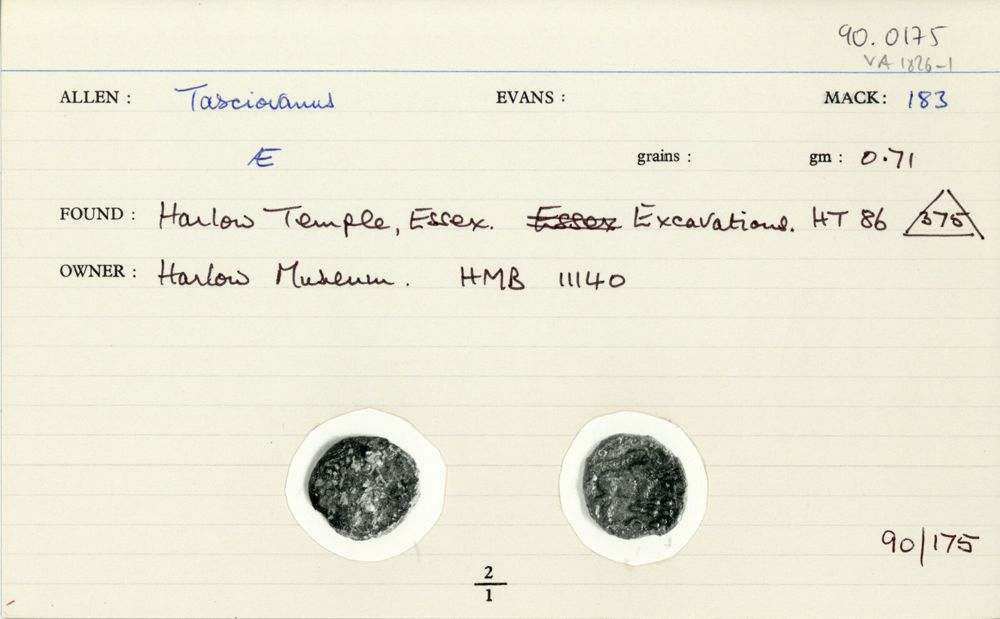 90.0175
VA 1826-1
ALLEN : Tasciovanus EVANS : MACK: 183
Æ grains : gm : 0.71
FOUND : Harlow Temple, Essex. Essex Excavations. HT 86 375
OWNER : Harlow Museum. HMB 11140
90/175
2
1